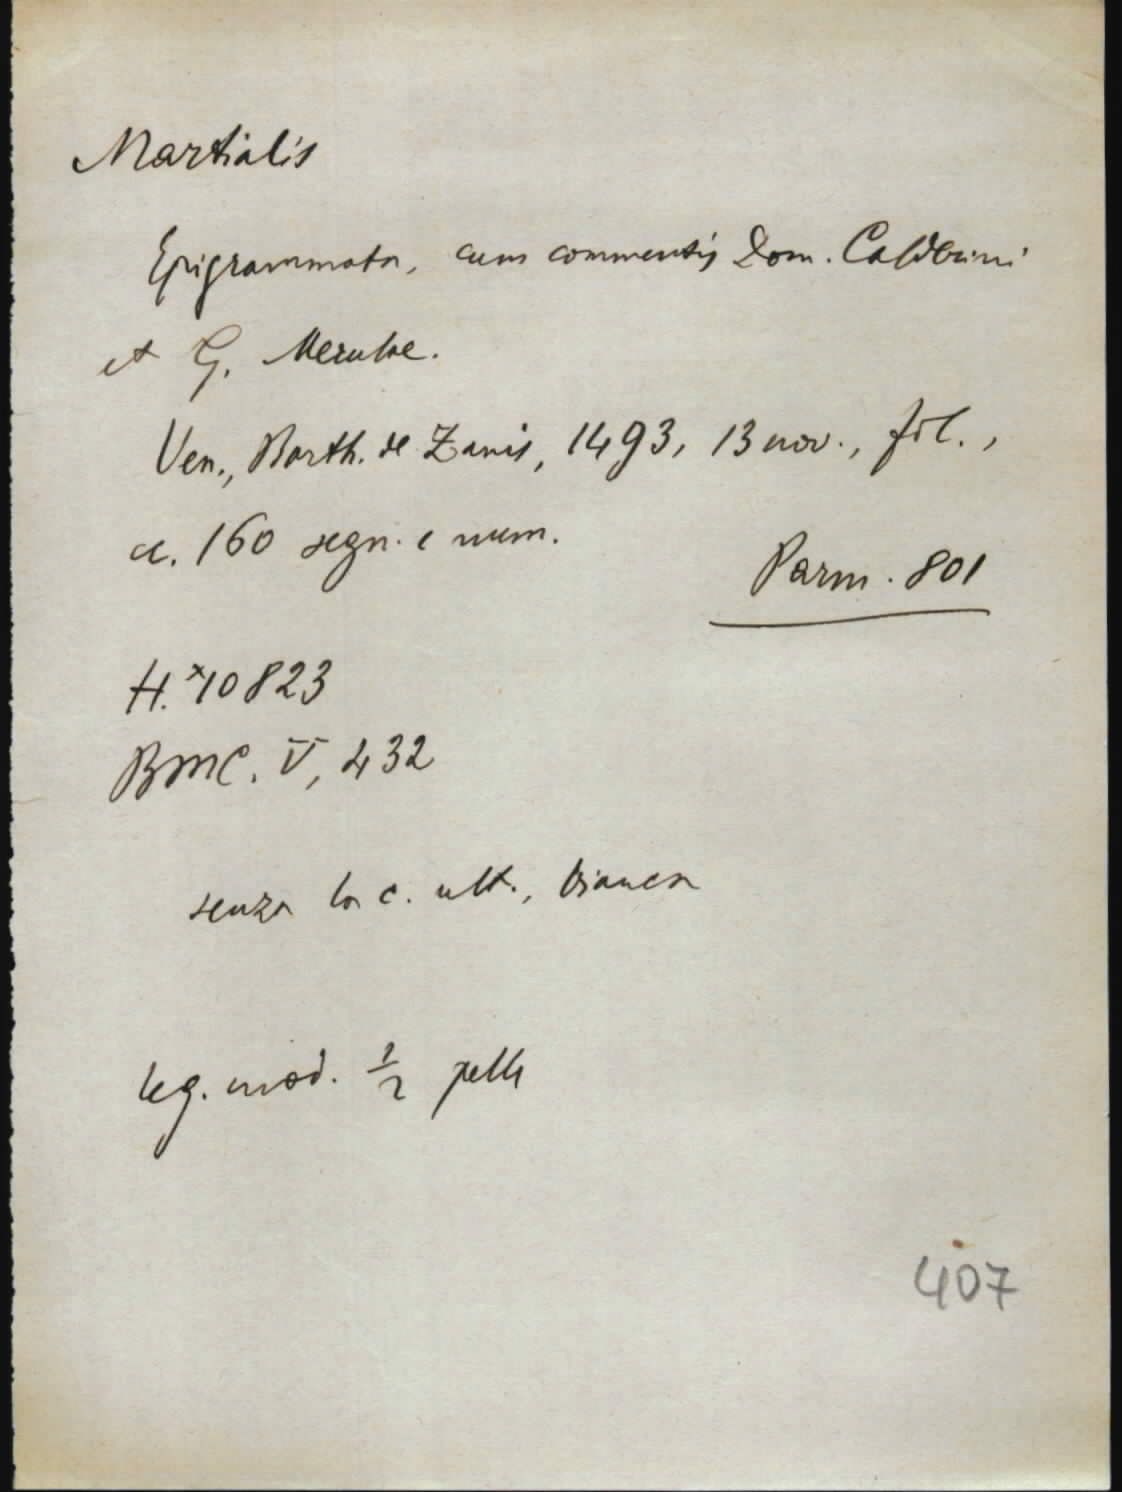 Martialis
Epigrammata, cum commentis Dom. Calderini
et G. Merulae.
Ven., Barth. de Zanis, 1493, 13 nov., fol.,
cc. 160 segn. e num.
Parm. 801
H.*10823
BMC. V, 432
senza la c. ult., bianca
leg. mod. 1/2 pelle
407